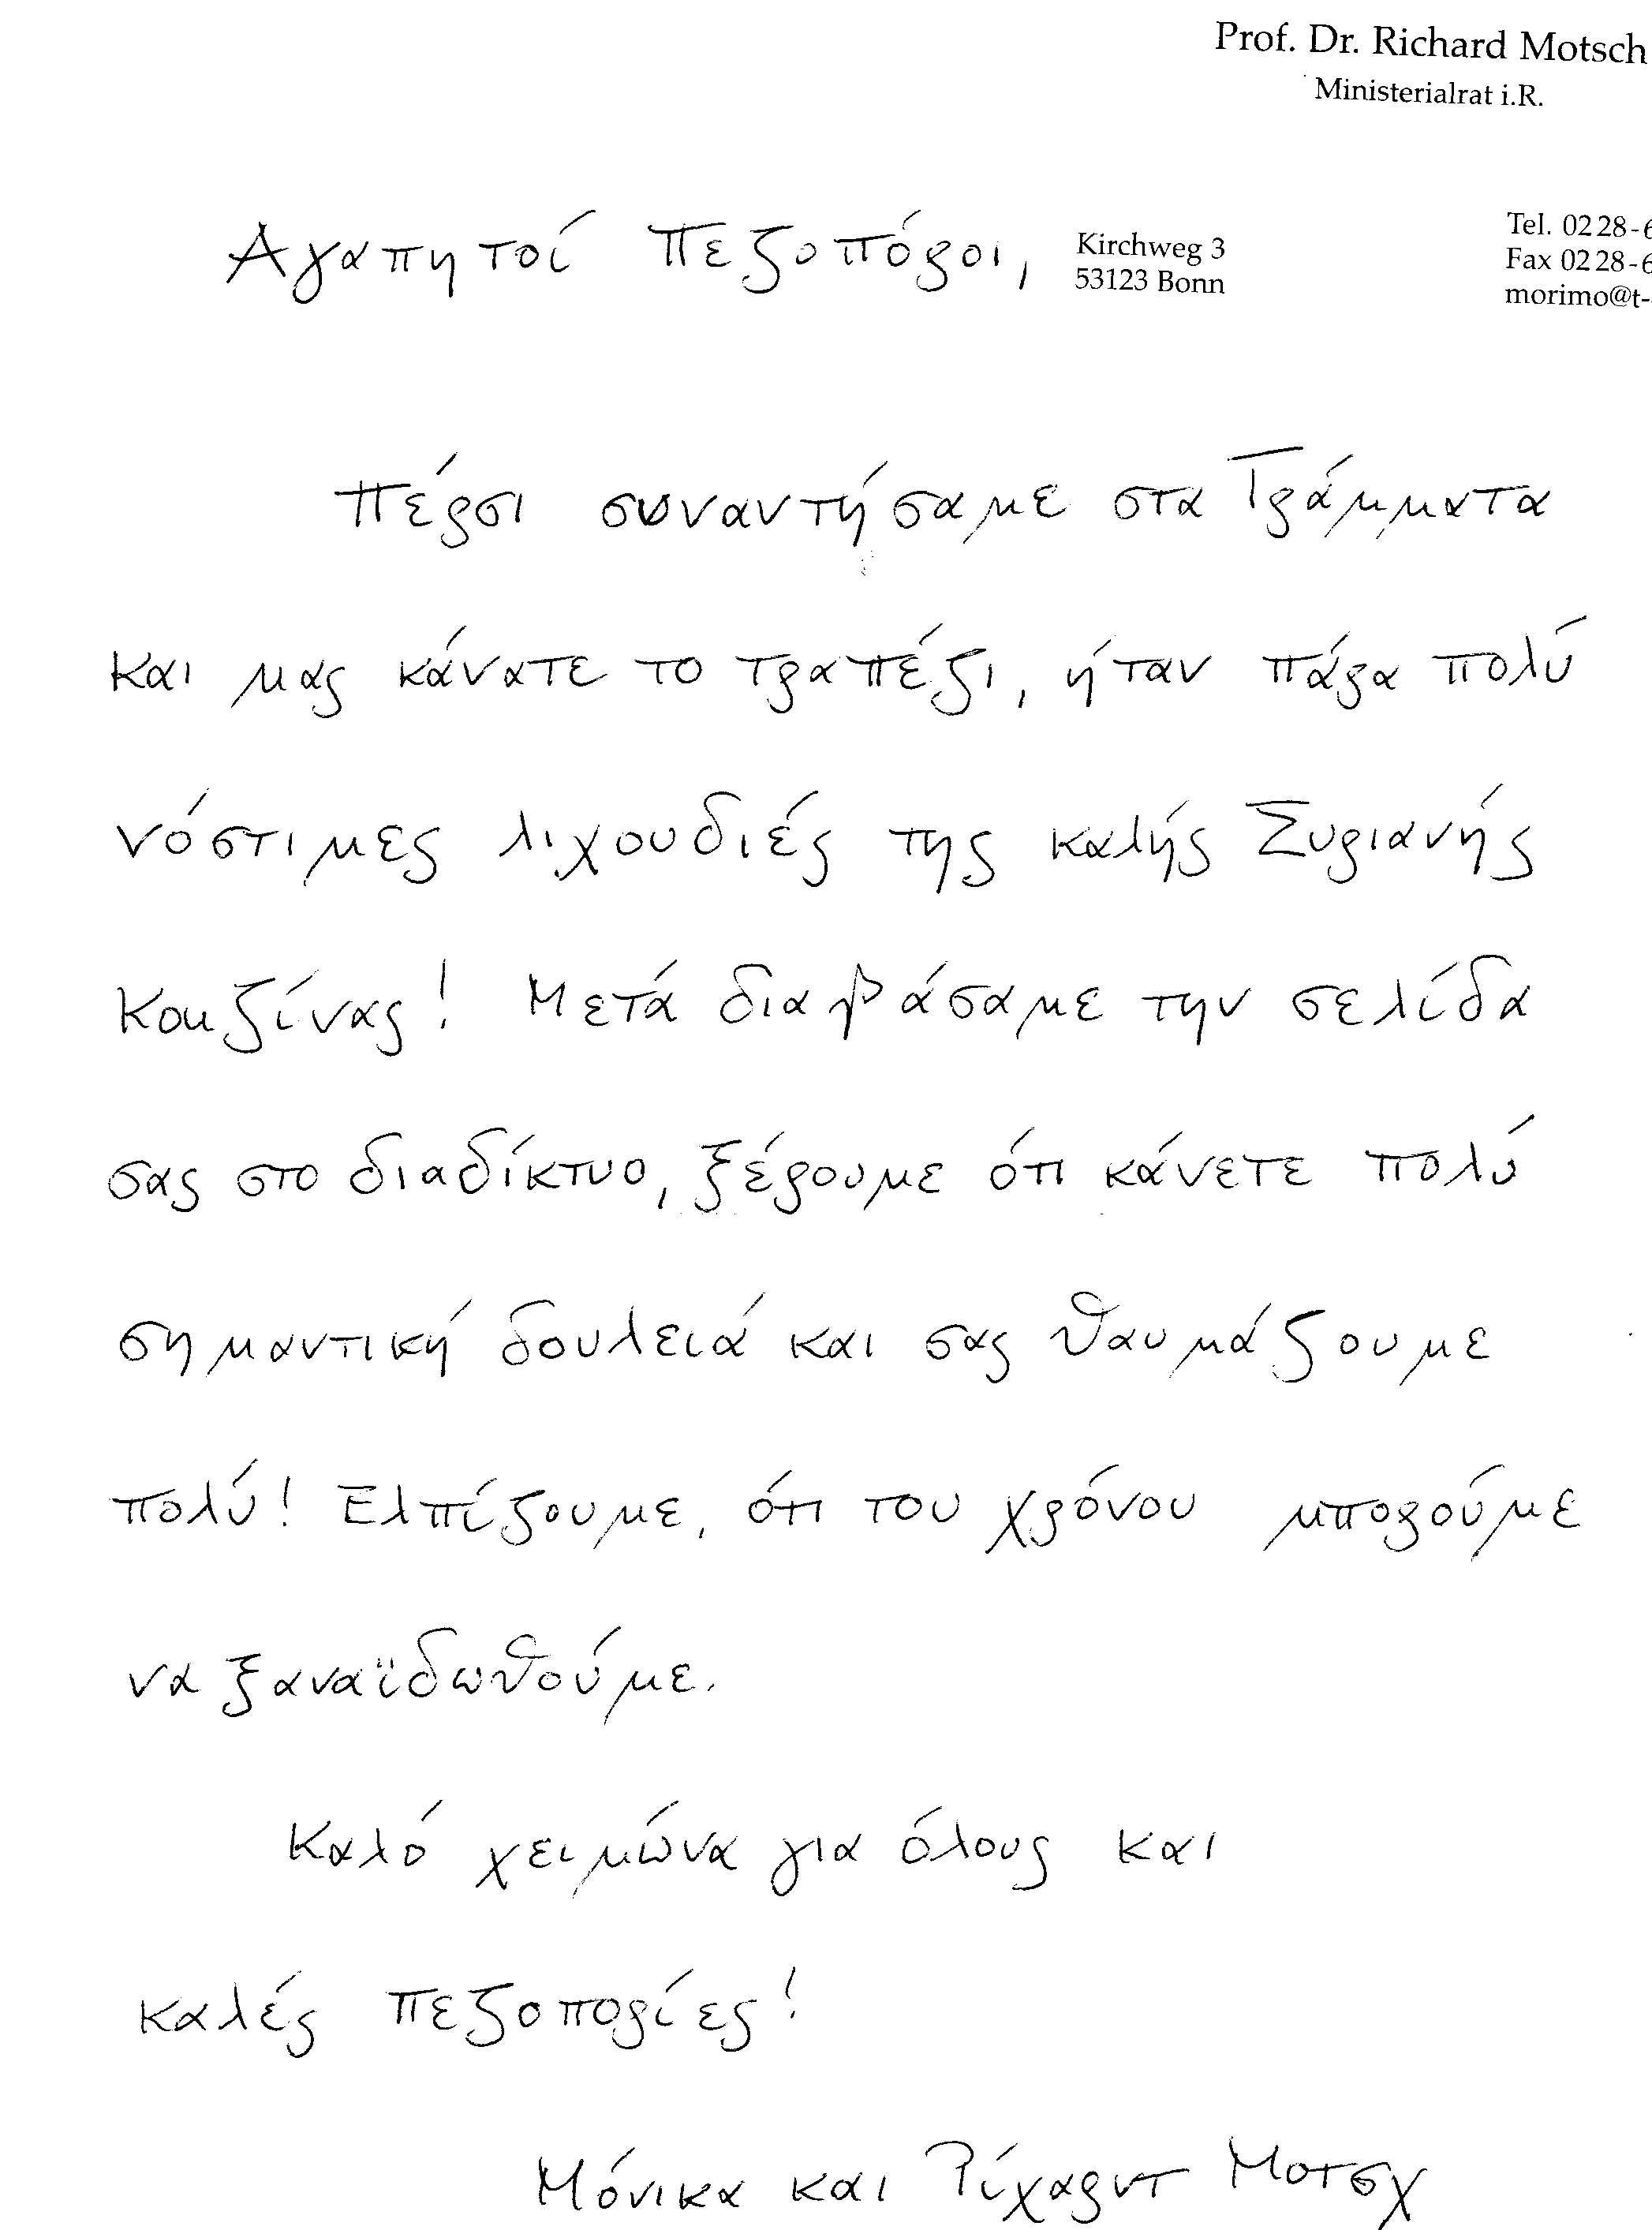 Prof. Dr. Richard Motsch
Ministerialrat i.R.
Αγαπητοί Πεζοπόροι,
Kirchweg 3
53123 Bonn
Tel. 0228-6
Fax 0228-6
morimo@t-
Πέρσι συναντήσαμε στα Γράμματα
και μας κάνατε το τραπέζι, ήταν πάρα πολύ
νόστιμες λιχουδιές της καλής Συριανής
Κουζίνας! Μετά διαβάσαμε την σελίδα
σας στο διαδίκτυο, ξέρουμε ότι κάνετε πολύ
σημαντική δουλειά και σας θαυμάζουμε
πολύ! Ελπίζουμε, ότι του χρόνου μπορούμε
να ξαναϊδωθούμε.
Καλό χειμώνα για όλους και
καλές πεζοπορίες!
Μόνικα και Ρίχαρντ Μοτσχ